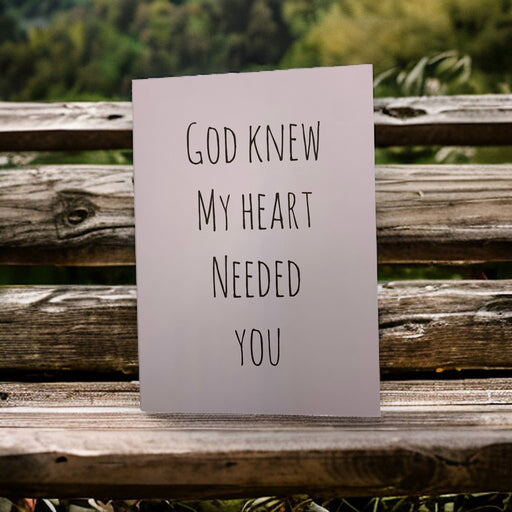 GOD KNEW
MY HEART
NEEDED
YOU